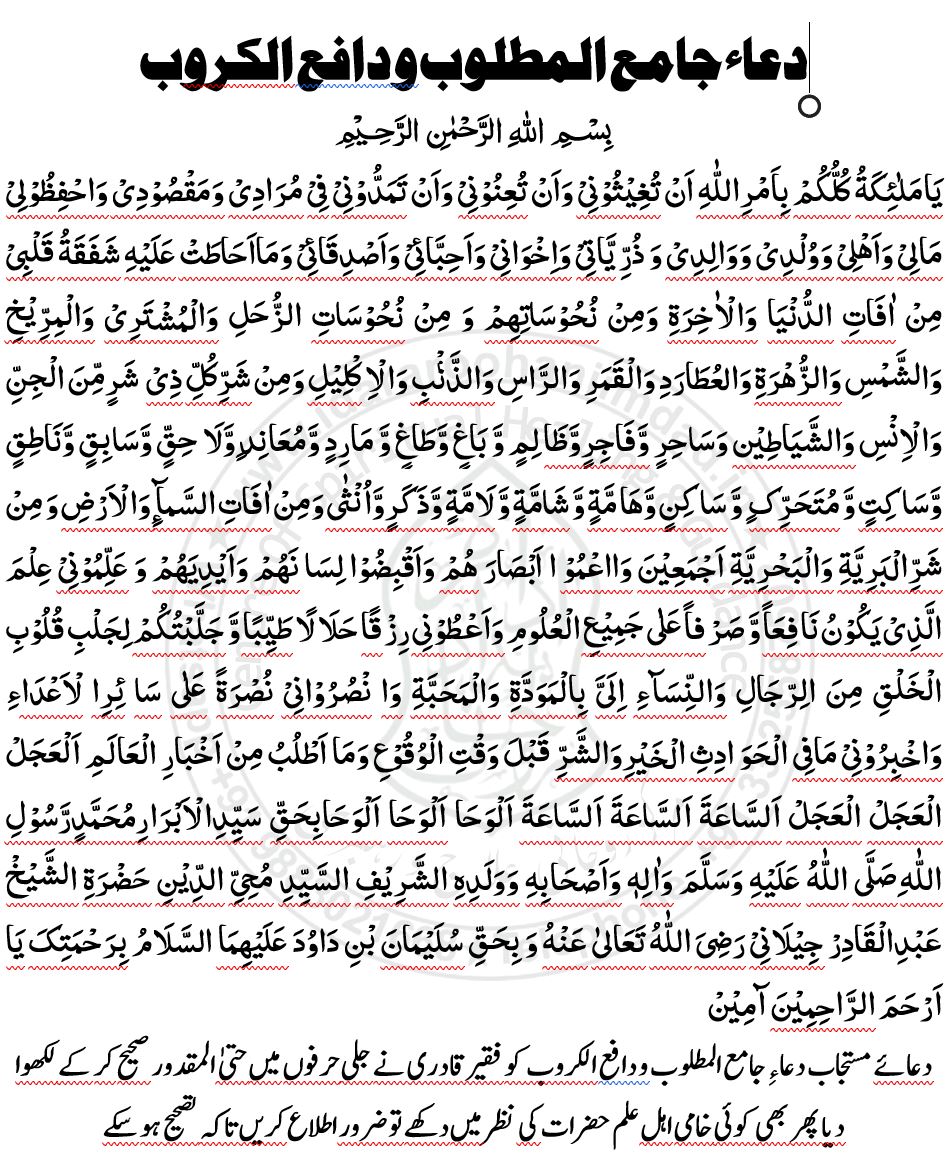 دعاء جامع المطلوب و دافع الکروب
بِسْمِ اللهِ الرَّحْمٰنِ الرَّحِیْمِ
یَامَلٰئِکَةُ کُلُّکُمْ بِاَمْرِ اللّٰهِ اَنْ تُغِیْثُوْنِیْ وَاَنْ تُعِنُوْنِیْ وَاَنْ تَمَدُّوْنِیْ فِیْ مُرَادِیْ وَمَقْصُوْدِیْ وَاحْفِظُوْلِیْ
مَالِیْ وَاَهْلِیْ وَوُلْدِیْ وَوَالِدِیْ وَ ذُرِّیَّاتِیْ وَاِخْوَانِیْ وَاَحِبَّائِیْ وَاَصْدِقَائِیْ وَمَااَحَاطَتْ عَلَیْهِ شَفَقَةُ قَلْبِیْ
مِنْ اٰفَاتِ الدُّنْیَا وَالْاٰخِرَةِ وَمِنْ نُحُوْسَاتِهِمْ وَ مِنْ نُحُوْسَاتِ الزُّحَلِ وَالْمُشْتَرِیْ وَالْمِرِّیْخِ
وَالشَّمْسِ وَالزُّهْرَةِ وَالعُطَارَدِ وَالْقَمَرِ وَالرَّاسِ وَالذَّنْبِ وَالْاِکْلِیْلِ وَمِنْ شَرِّکُلِّ ذِیْ شَرٍمِّنَ الْجِنِّ
وَالْاِنْسِ وَالشَّیَاطِیْن وَسَاحِرٍ وَّفَاجِرٍوَّظَالِمٍ وَّ بَاغٍ وَّطَاغٍ وَّ مَارِدٍ وَّمُعَانِدٍوَّلَا حِقٍّ وَّسَابِقٍ وَّنَاطِقٍ
وَّسَاکِتٍ وَّمُتَحَرِّکٍ وَّسَاکِنٍ وَّهَامَّةٍ وَّشَامَّةٍ وَّلَامَّةٍ وَّذَکَرٍ وَّاُنْثٰی وَمِنْ اٰفَاتِ السَّمآءِ وَالْاَرْضِ وَمِنْ
شَرِّ الْبَرِیَّةِ وَالْبَحْرِیَّةِ اَجْمَعِیْنَ وَااعْمُوْ ا اَبْصَارَ هُمْ وَاَقْبِضُوْا لِسَا نَهُمْ وَاَیْدِیَهُمْ وَ عَلِّمُوْنِیْ عِلْمَ
الَّذِیْ یَکُوْنُ نَافِعَاًوَّصَرْ فاً عَلٰی جَمِیْعِ الْعُلُومِ وَاَعْطُوْنِی رِزْ قًا حَلَا لًا طَیِّبًا وَّ جَلَّبْتُکُمْ لِجَلْبِ قُلُوْبِ
الْخَلْقِ مِنَ الرِّجَالِ وَالنِّسَآءِ اِلَیَّ بِالْمَوَدَّةِ وَالْمَحَبَّةِ وَا نْصُرُوْانِیْ نُصْرَةً عَلٰی سَا ئِرِا لْاَعْدَاءِ
وَاخْبِرُوْنِیْ مَافِی الْحَوَ ادِثِ الْخَیْرِ وَالشَّرِّ قَبْلَ وَقْتِ الْوُقُوْعِ وَمَا اَطْلُبُ مِنْ اَخْبَارِ الْعَالَمِ اَلْعَجَلْ
الْعَجَلْ الْعَجَلْ اَلسَّاعَةَ اَلسَّاعَةَ اَلسَّاعَةَ اَلْوَحَا اَلْوَحَا اَلْوَحَابِحَقِّ سَیِّدِالْاَبْرَارِمُحَمَّدٍرَّسُوْلِ
اللّٰهِ صَلَّی اللّٰهُ عَلَیْهِ وَسَلَّمَ وَاٰلِهٖ وَاَصْحَابِهٖ وَوَلَدِهِ الشَّرِیْفِ السَّیِّدِ مُحِیِّ الدِّیْنِ حَضْرَةِ الشَّیْخْ
عَبْدِالْقَادِرْ جِیْلَانِیْ رَضِیَ اللّٰهُ تَعَالیٰ عَنْهُ وَ بِحَقِّ سُلَیْمَانَ بْنِ دَاوٗدَ عَلَیْهِمَا السَّلَامُ بِرَحْمَتِکَ یَا
اَرْحَمَ الرَّاحِمِیْنَ آمِیْنْ
دعائے مستجاب دعاءِ جامع المطلوب و دافع الکروب کو فقیر قادری نے جلی حرفوں میں حتیٰ المقدور صحیح کر کے لکھوا
دیا پھر بھی کوئی خامی اہل علم حضرات کی نظر میں دکھے تو ضرور اطلاع کریں تاکہ تصحیح ہو سکے